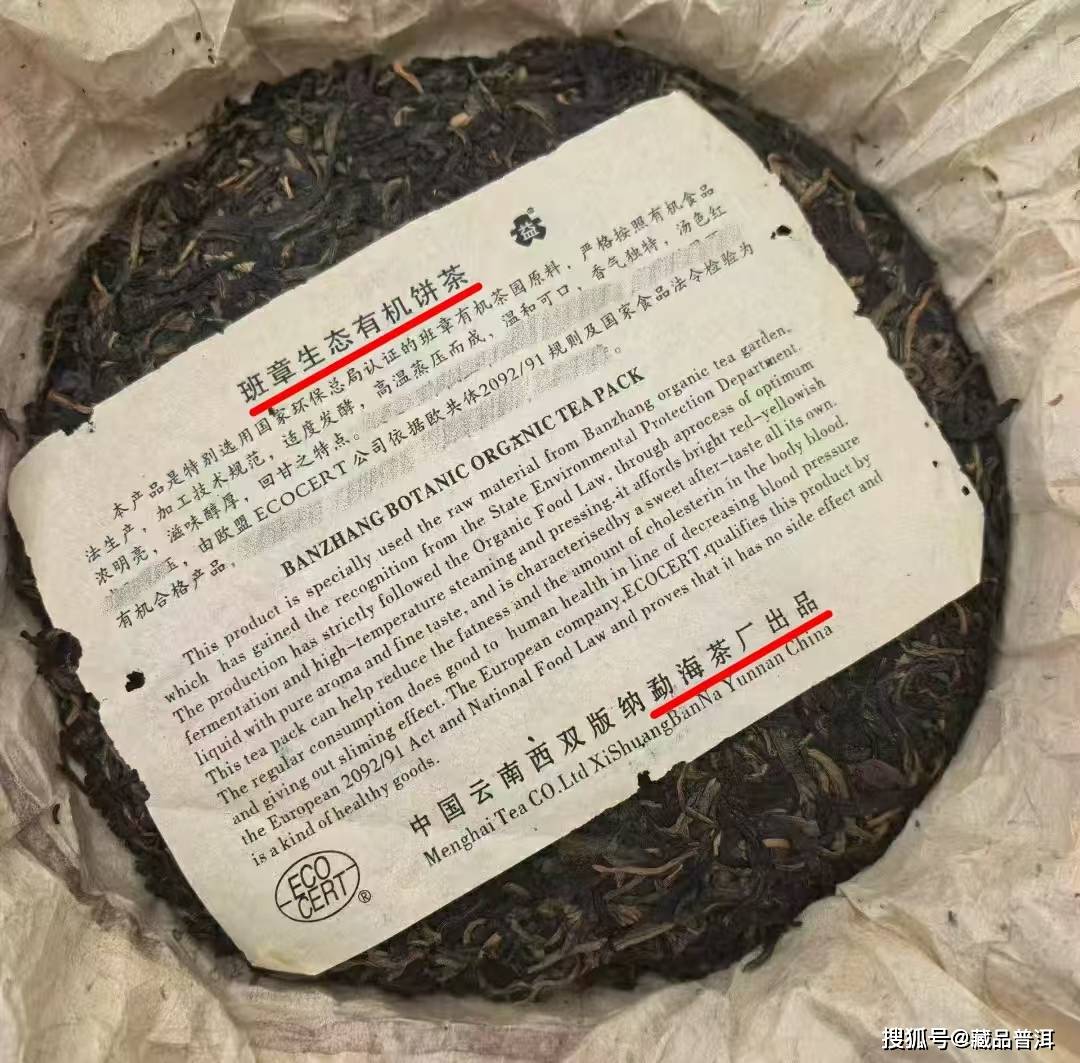 益
班章生态有机饼茶
本产品是特别选用国家环保总局认证的班章有机茶园原料，严格按照有机食品
法生产，加工技术规范，适度发酵，高温蒸压而成，温和可口，香气独特，汤色红
浓明亮，滋味醇厚，回甘之特点。
由欧盟ECOCERT公司依据欧共体2092/91规则及国家食品法令检验为
有机合格产品，
BANZHANG BOTANIC ORGANIC TEA PACK
This product is specially used the raw material from Banzhang organic tea garden,
which has gained the recognition from the State Environmental Protection Department.
The production has strictly followed the Organic Food Law, through aprocess of optimum
fermentation and high-temperature steaming and pressing.it affords bright red-yellowish
liquid with pure aroma and fine taste, and is characterisedby a sweet after-taste all its own.
This tea pack can help reduce the fatness and the amount of cholesterin in the body blood,
The regular consumption does good to human health in line of decreasing blood pressure
and giving out sliming effect. The European company,ECOCERT,qualifies this product by
the European 2092/91 Act and National Food Law and proves that it has no side effect and
is a kind of healthy goods.
中国云南西双版纳勐海茶厂出品
Menghai Tea CO.Ltd XiShuangBanNa Yunnan China
ECO
CERT
®
搜狐号@藏品普洱